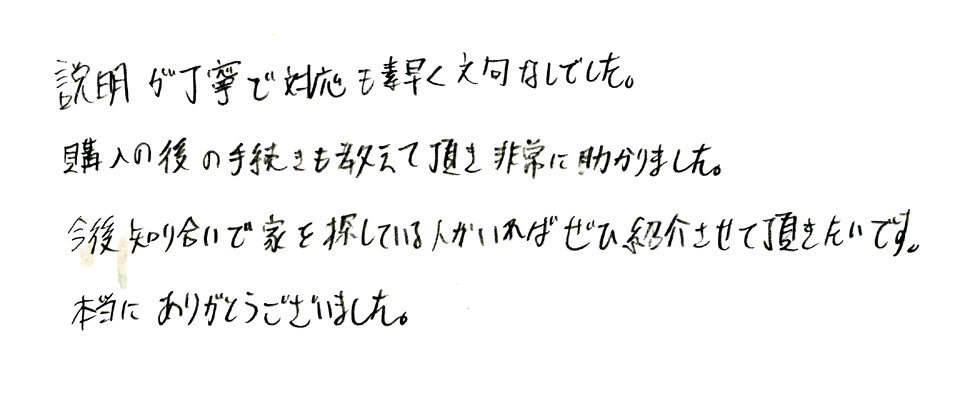 説明が丁寧で対応も素早く文句なしでした。
購入の後の手続きも教えて頂き非常に助かりました。
今後知り合いで家を探している人がいればぜひ紹介させて頂きたいです。
本当にありがとうございました。